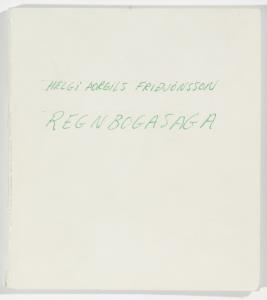 HELGI ÞORGILS FRIÐJÓNSSON
REGNBOGASAGA